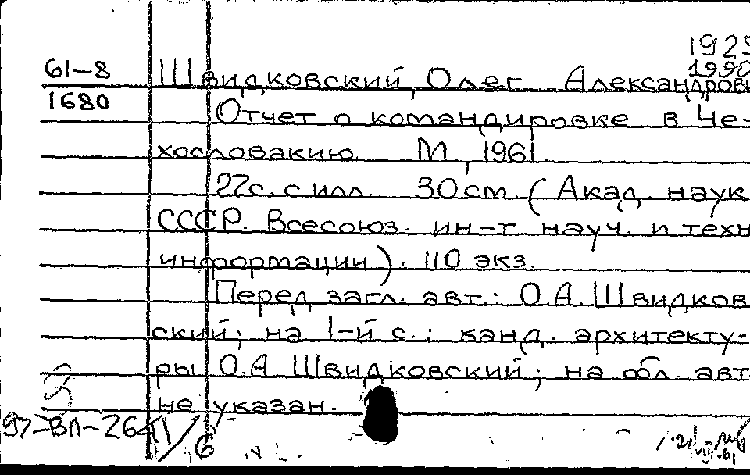 1925
1990
61-8
Швидковский, Олег Александрови
1680
Отчет о командировке в Че-
хословакию. М., 1961.
22с. с илл. 30см. (Акад. наук
СССР. Всесоюз. ин-т науч. и техн
информации). 110 экз.
Перед загл. авт.: О.А. Швидков
ский; на 1-й с.: канд. архитекту-
ры О.А. Швидковский; на обл. авт
не указан.
97-ВЛ-2641/6